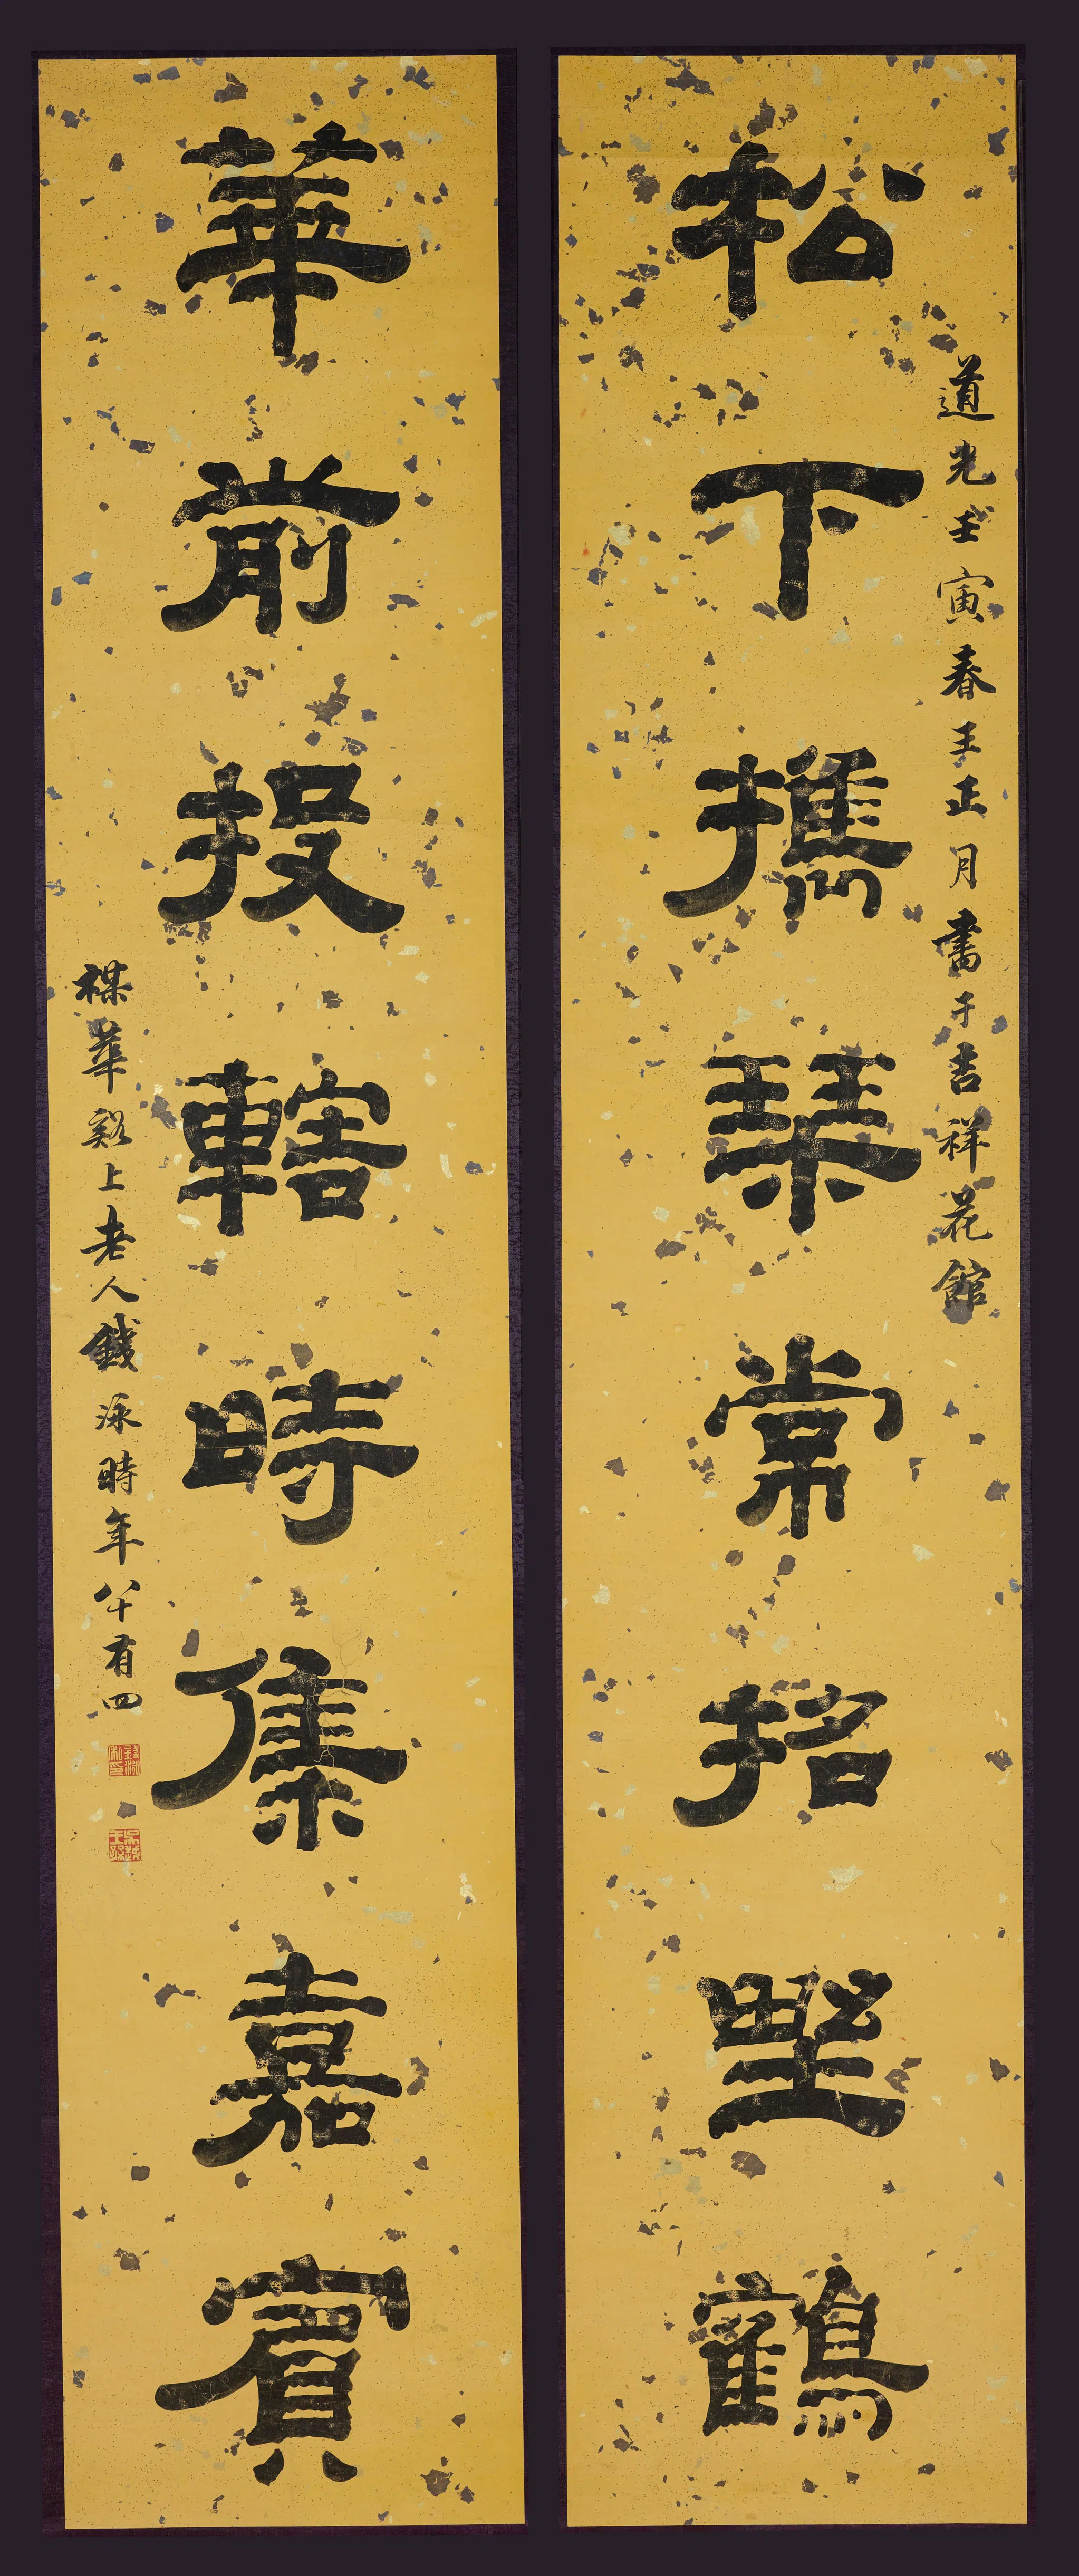 道光壬寅春王正月書于吉祥花館
松下攜琴常招野鶴
華前投轄時集嘉賓
楳華谿上老人錢泳時年八十有四
錢泳私印
吳越王孫